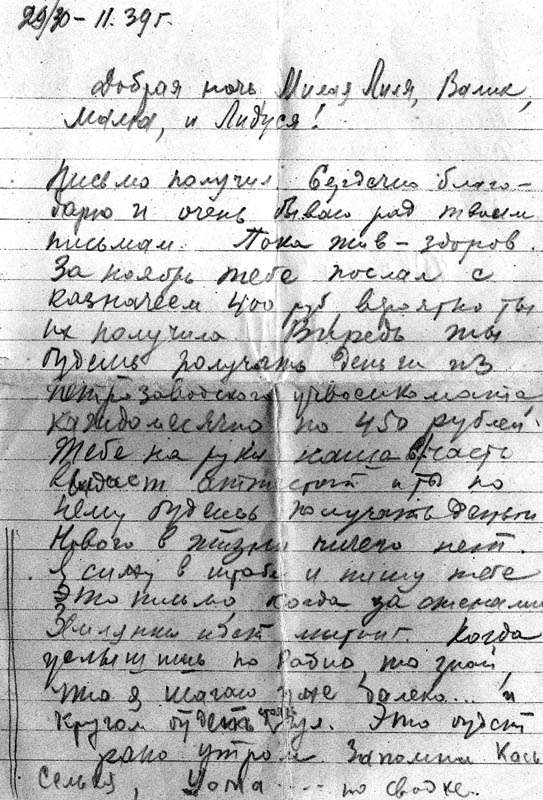 29/30 – 11. 39 г.
Добрая ночь Милая Лиля, Валик,
Мама, и Лидуся!
Письмо получил. Сердечно благо-
дарю и очень бываю рад твоим
письмам. Пока жив – здоров.
За ноябрь тебе послал с
казначеем 400 руб вероятно ты
их получила. Впредь ты
будешь получать деньги из
петрозаводского
каждомесячно по 450 рублей.
Тебе на руки наша часть
выдаст аттестат и ты по
нему будешь получать деньги
Нового в жизни ничего нет.
Я сижу в штабе и пишу тебе
Это письмо, когда за стенами
Землянки идет митинг. Когда
услышишь по Радио, то знай,
что я шагаю уже далеко... и
кругом будет гул. Это будет
рано утром. Запомни
по сводке.